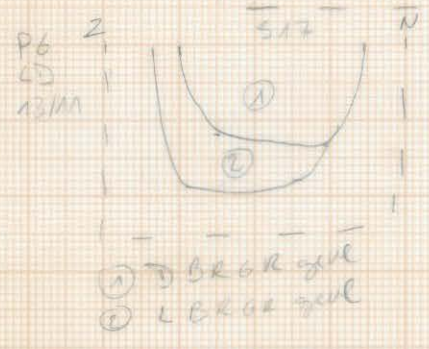 P6
LD
13/11
Z
S17
N
1
2
① D BRGR gevl
② L BRGR gevl